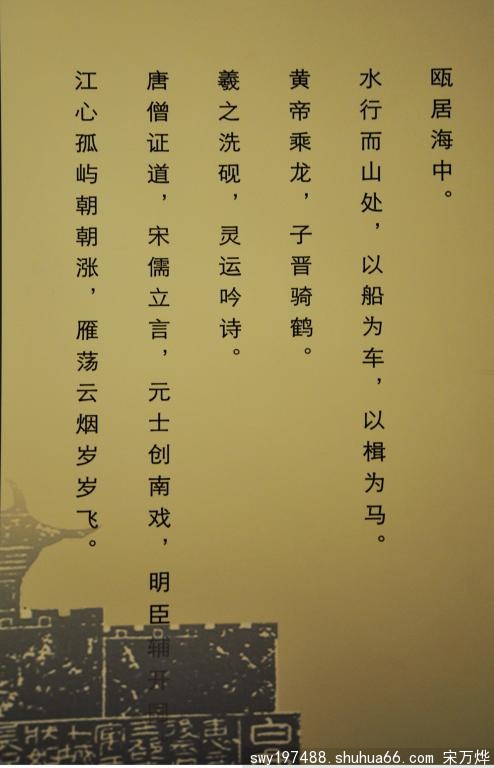 瓯居海中。
水行而山处，以船为车，以楫为马。
黄帝乘龙，子晋骑鹤。
羲之洗砚，灵运吟诗。
唐僧证道，宋儒立言，元士创南戏，明臣辅开国
江心孤屿朝朝涨，雁荡云烟岁岁飞。
swy197488.shuhua66.com 宋万烨